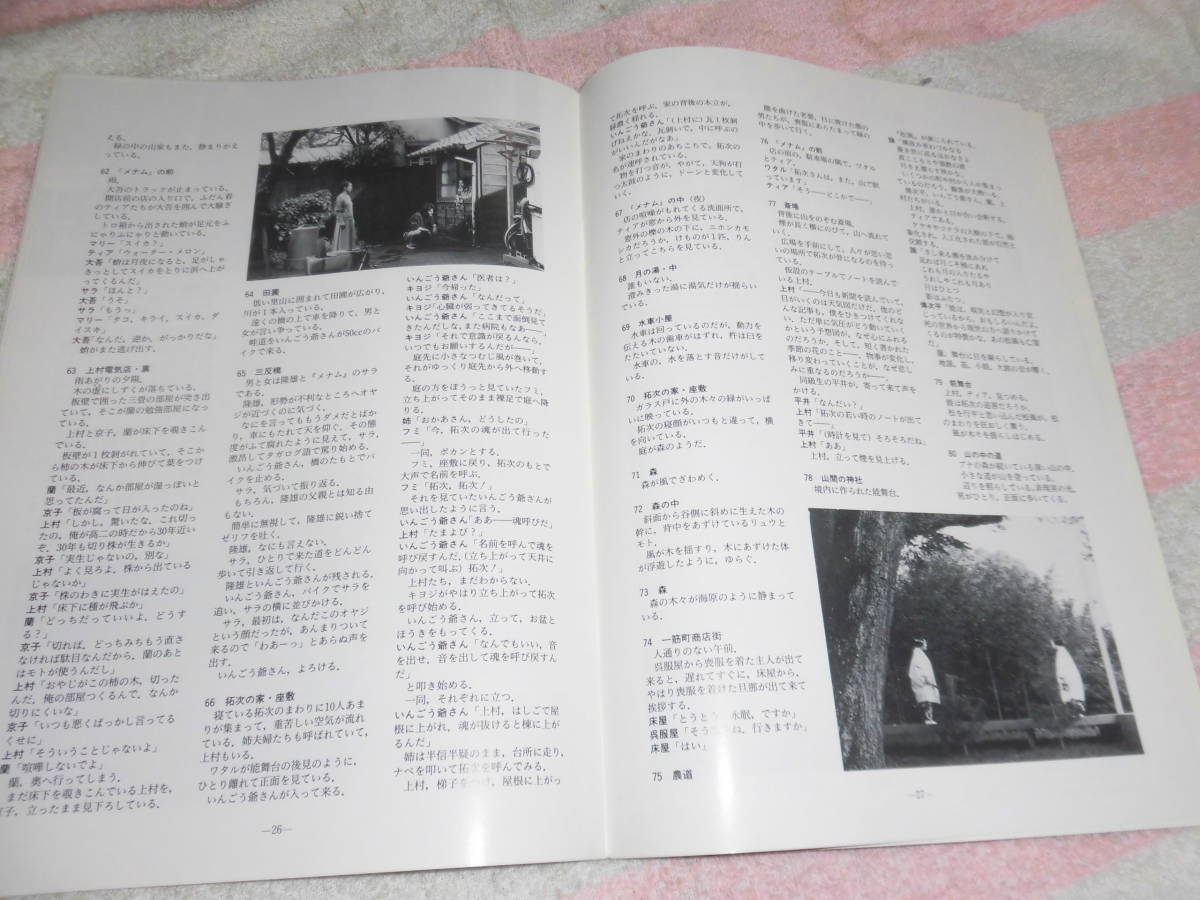 える．
緑の中の山家もまた，静まりかえ
っている．
62 『メナム』の前
雨．
大吾のトラックが止まっている．
開店前の店の入り口で，ふだん着
のティアたちが大吾を囲んで大騒ぎ
している．
トロ箱から出された蛸が足元をふ
にゃりふにゃりと動いている．
マリー「スイカ？」
ティア「ウォーター・メロン」
大吾「蛸は月夜になると，足がしゃ
きっとしてスイカをとりに浜へ上が
ってくるんだ」
サラ「ほんと？」
大吾「うそ」
サラ「もうっ」
マリー「テコ，キライ，スイカ，ダ
イスキ」
大吾「なんだ，逆か，がっかりだな」
蛸がまた逃げ出す．
63 上村電気店・裏
雨あがりの夕陽．
木の虚にしずくが落ちている．
板壁で囲った三畳の部屋が突き出
ていて，そこが蘭の勉強部屋になっ
ている．
上村と京子，蘭が床下を覗きこん
でいる．
板壁が１枚剥がれていて，そこか
ら柿の木が床下から伸びて葉をつけ
ている．
蘭「最近，なんか部屋が湿っぽいと
思ってたんだ」
京子「板が腐って日が入ったのね」
上村「しかし，驚いたな，これ切っ
たの，俺が高二の時だから30年近い
ぞ，30年も切り株が生きるか」
京子「実生じゃないの，別な」
上村「よく見ろよ，株から出ている
じゃないか」
京子「株のわきに実生がはえたの」
上村「床下に種が飛ぶか」
蘭「どっちだっていいよ，どうす
る？」
京子「切れば，どっちみちもう直さ
なければ駄目なんだから，蘭のあと
はモトが使うんだし」
上村「おやじがこの柿の木，切った
んだ，俺の部屋つくるんで，なんか
切りにくいな」
京子「いつも悪くばっかし言ってる
くせに」
上村「そういうことじゃないよ」
蘭「喧嘩しないでよ」
蘭，奥へ行ってしまう．
まだ床下を覗きこんでいる上村を，
京子，立ったまま見下ろしている．
64 田圃
低い里山に囲まれて田圃が広がり，
川が１本入っている．
遠くの橋の上で車を降りて，男と
女が言い争っている．
畦道をいんごう爺さんが50ccのバ
イクで来る．
65 三反橋
男と女は隆雄と『メナム』のサラ
である．
隆雄，形勢が不利なところへオヤ
ジが近づくのに気づく．
なにを言ってももうダメだとばか
り，車にもたれて天を仰ぐ．その態
度がふて腐れたように見えて，サラ，
激昂してタガログ語で罵り始める．
いんごう爺さん，橋のたもとでバ
イクを止める．
サラ，気づいて振り返る．
もちろん，隆雄の父親とは知る由
もない．
簡単に無視して，隆雄に鋭い捨て
ゼリフを吐く．
隆雄，なにも言えない．
サラ，ひとりで来た道をどんどん
歩いて引き返して行く．
隆雄といんごう爺さんが残される．
いんごう爺さん，バイクでサラを
追い，サラの横に並びかける．
サラ，最初は，なんだこのオヤジ
という顔だったが，あんまりついて
来るので「わあーっ」とあらぬ声を
出す．
いんごう爺さん，よろける．
66 拓次の家・座敷
寝ている拓次のまわりに10人あま
りが集まって，重苦しい空気が流れ
ている．姉夫婦たちも呼ばれていて，
上村もいる．
ワタルが能舞台の後見のように，
ひとり離れて正面を見ている．
いんごう爺さんが入って来る．
いんごう爺さん「医者は？」
キヨジ「今帰った」
いんごう爺さん「なんだって」
キヨジ「心臓が弱ってきてるそうだ」
いんごう爺さん「ここまで面倒見て
きたんだしな，また病院もなあ——」
キヨジ「それで意識が戻るんなら，
いつでもお願いするんだが——」
庭先に小さなつむじ風が巻いて，
それがゆっくり庭先から外へ移動す
る．
庭の方をぼうっと見ていたフミ，
立ち上がってそのまま裸足で庭へ降
りる．
姉「おかあさん，どうしたの」
フミ「今，拓次の魂が出て行った
——」
一同，ポカンとする．
フミ，座敷に戻り，拓次のもとで
大声で名前を呼ぶ．
フミ「拓次，拓次！」
それを見ていたいんごう爺さんが
思い出したように言う．
いんごう爺さん「ああ——魂呼びだ」
上村「たまよび？」
いんごう爺さん「名前を呼んで魂を
呼び戻すんだ，（立ち上がって天井に
向かって叫ぶ）拓次！」
上村たち，まだわからない．
キヨジがやはり立ち上がって拓次
を呼び始める．
いんごう爺さん，立って，お盆と
ほうきをもってくる．
いんごう爺さん「なんでもいい，音
を出せ，音を出して魂を呼び戻すん
だ」
と叩き始める．
一同，それぞれに立つ．
いんごう爺さん「上村，はしごで屋
根に上がれ，魂が抜けると棟に上が
るんだ」
姉は半信半疑のまま，台所に走り，
ナベを叩いて拓次を呼んでみる．
上村，梯子をつけ，屋根に上がっ
—26—
て拓次を呼ぶ．家の背後の木立が，
緑濃く揺れる．
いんごう爺さん「（上村に）瓦１枚剥
げねえかな，瓦剥いで，中に呼ぶの
がいいんだがなあ」
家のまわりのあちこちで，拓次の
名が連呼されている．
物を打つ音が，やがて，天狗が打
つ太鼓のように，ドーンと変化して
いく．
67 『メナム』の中（夜）
店の喧噪がもれてくる洗面所で，
ティアが窓から外を見ている．
窓外の欅の木の下に，ニホンカモ
シカだろうか，けものが１匹，りん
と立ってこちらを見ている．
68 月の湯・中
誰もいない．
澄みきった湯に湯気だけが揺らい
でいる．
69 水車小屋
水車は回っているのだが，動力を
伝える木の歯車がはずれ，杵は臼を
たたいていない．
水車の，水を落とす音だけがして
いる．
70 拓次の家・座敷
ガラス戸に外の木々の緑がいっぱ
いに映っている．
拓次の寝顔がいつもと違って，横
を向いている．
庭が森のようだ．
71 森
森が風でざわめく．
72 森の中
斜面から谷側に斜めに生えた木の
幹に，背中をあずけているリュウと
モト．
風が木を揺すり，木にあずけた体
が浮遊したように，ゆらぐ．
73 森
森の木々が海原のように静まって
いる．
74 一筋町商店街
人通りのない午前．
呉服屋から喪服を着た主人が出て
来ると，遅れてすぐに，床屋から，
やはり喪服を着けた旦那が出て来て
挨拶する．
床屋「とうとう，永眠，ですか」
呉服屋「そうですね，行きますか」
床屋「はい」
75 農道
腰を曲げた老婆，日に焼けた顔の
男たちが，喪服にあらたまって緑の
中を歩いて行く．
76 『メナム』の前
店の前の，駐車場の隅で，ワタル
とティア．
ワタル「拓次さんは，また，山で眠
っています」
ティア「そう——どこかで——」
77 斎場
背後に山をのぞむ斎場．
煙が長く横にのびて，山へ流れて
いく．
広場を手前にして，人々が思い思
いの場所で拓次が骨になるのを待っ
ている．
仮設のテーブルでノートを読んで
いる上村．
上村「——今日も新聞を読んでいて，
目がいくのは天気図だけだ，他のど
んな記事も，僕をひきつけてくれな
い，ただ単に気圧がどう動いていく
かという予想図が，なぜ心にふれる
のだろうか，そして，短く書かれた
季節の花のこと——，物事が変化し，
移り変わっていくことが，なぜ悲し
みに重なるのだろうか——」
同級生の平井が，寄って来て声を
かける．
平井「なんだい？」
上村「拓次の若い時のノートが出て
きて——」
平井「（時計を見て）そろそろだね」
上村「ああ」
上村，立って煙を見上げる．
78 山間の神社
境内に作られた能舞台．
『松風』が演じられている．
村人たちがいる．
ティアである．
79 能舞台
風が木々を揺らしはじめる．
80 山の中の道
小さな道が山を登っている．